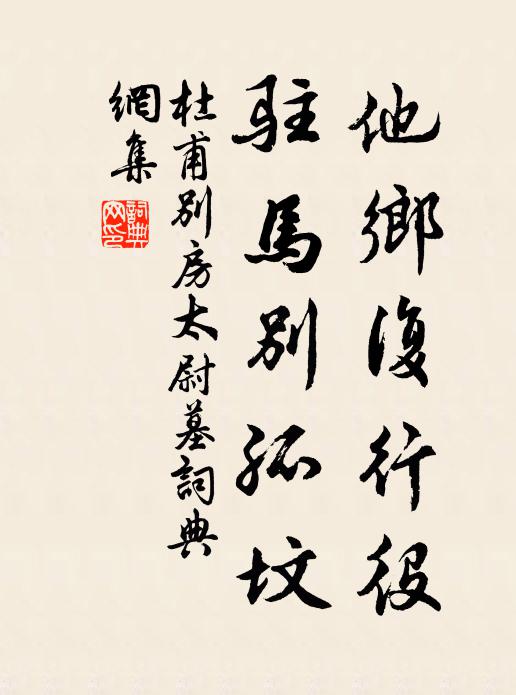 他鄉復行役
駐馬別孤墳
杜甫別房太尉墓詞典
網集
詞典
网印